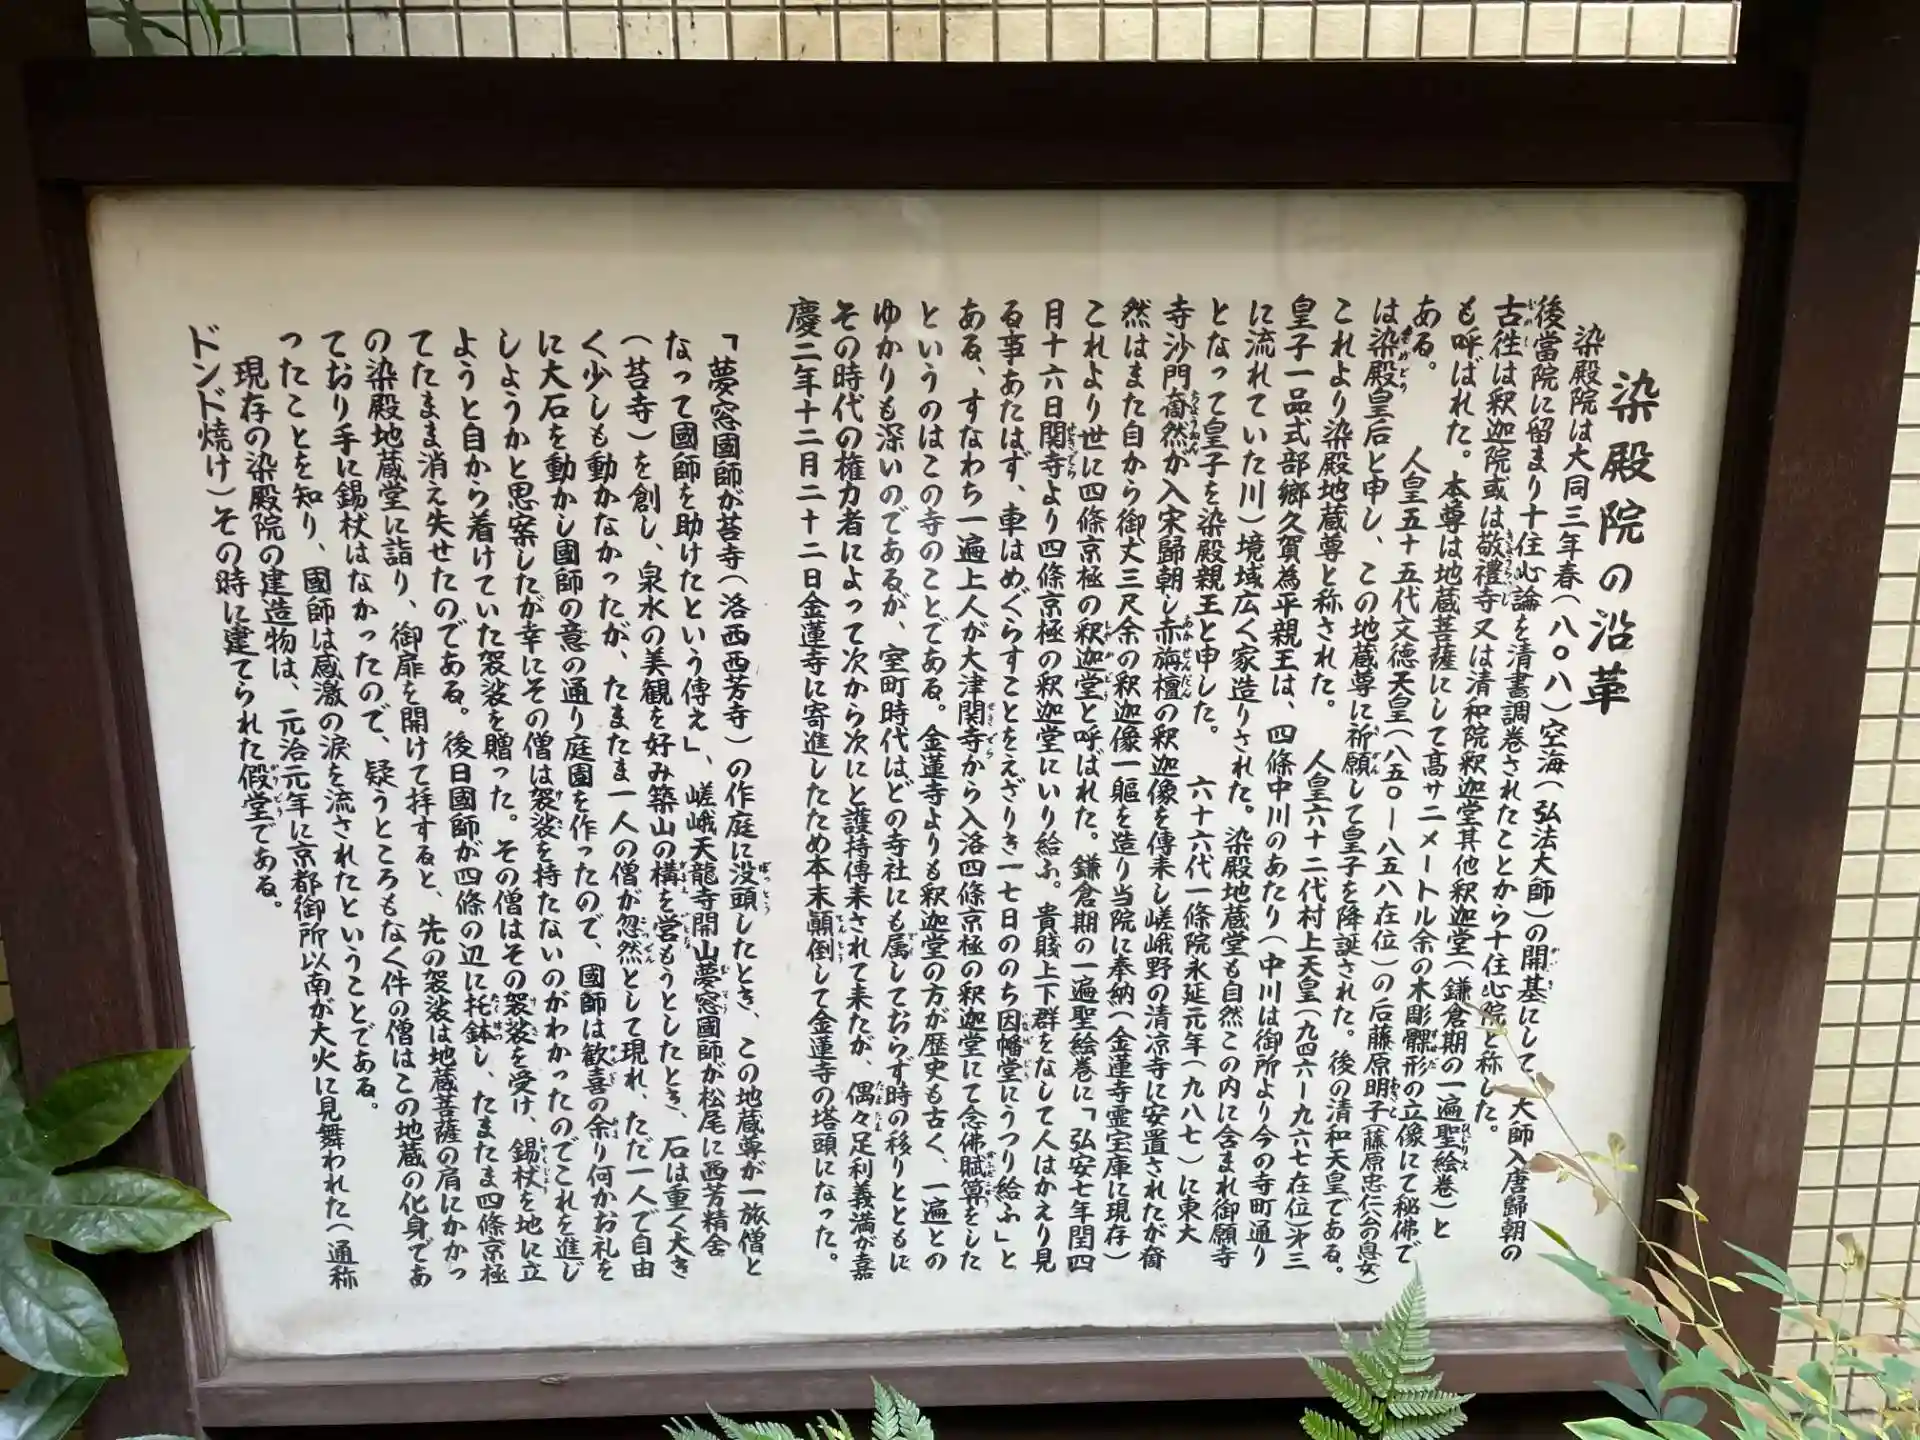 染殿院の沿革
染殿院は大同三年春(八〇八)空海(弘法大師)の開基にして、大師入唐歸朝の
後當院に留まり十住心論を清書調巻されたことから十住心院と称した。
古徃は釈迦院或は敬禮寺又は清和院釈迦堂其他釈迦堂(鎌倉期の一遍聖絵巻)と
も呼ばれた。本尊は地蔵菩薩にして髙サ二メートル余の木彫髁形の立像にて秘佛で
ある。 人皇五十五代文徳天皇(八五〇ー八五八在位)の后藤原明子(藤原忠仁公の息女)
は染殿皇后と申し、この地蔵尊に祈願して皇子を降誕された。後の清和天皇である。
これより染殿地蔵尊と称された。 人皇六十二代村上天皇(九四六ー九六七在位)㐧三
皇子一品式部郷久賀為平親王は、四條中川のあたり(中川は御所より今の寺町通り
に流れていた川)境域広く家造りされた。染殿地蔵堂も自然この内に含まれ御願寺
となって皇子を染殿親王と申した。 六十六代一條院永延元年(九八七)に東大
寺沙門奝然が入宋歸朝し赤旃檀の釈迦像を傳来し嵯峨野の清凉寺に安置されたが奝
然はまた自から御丈三尺余の釈迦像一軀を造り当院に奉納(金蓮寺霊宝庫に現存)
これより世に四條京極の釈迦堂と呼ばれた。鎌倉期の一遍聖絵巻に「弘安七年閏四
月十六日関寺より四條京極の釈迦堂にいり給ふ。貴賤上下群をなして人はかえり見
る事あたはず、車はめぐらすことをえざりき一七日ののち因幡堂にうつり給ふ」と
ある、すなわち一遍上人が大津関寺から入洛四條京極の釈迦堂にて念佛賦算をした
というのはこの寺のことである。金蓮寺よりも釈迦堂の方が歴史も古く、一遍との
ゆかりも深いのであるが、室町時代はどの寺社にも属しておらず時の移りとともに
その時代の権力者によって次から次にと護持傳来されて来たが、偶々足利義満が嘉
慶二年十二月二十二日金蓮寺に寄進したため本末顛倒して金蓮寺の塔頭になった。
「夢窓國師が苔寺(洛西西芳寺)の作庭に没頭したとき、この地蔵尊が一旅僧と
なって國師を助けたという傳え」、嵯峨天龍寺開山夢窓國師が松尾に西芳精舎
(苔寺)を創し、泉水の美観を好み築山の構を営もうとしたとき、石は重く大き
く少しも動かなかったが、たまたま一人の僧が忽然として現れ、ただ一人で自由
に大石を動かし國師の意の通り庭園を作ったので、國師は歓喜の余り何かお礼を
しようかと思案したが幸にその僧は袈裟を持たないのがわかったのでこれを進じ
ようと自から着けていた袈裟を贈った。その僧はその袈裟を受け、錫杖を地に立
てたまま消え失せたのである。後日國師が四條の辺に托鉢し、たまたま四條京極
の染殿地蔵堂に詣り、御扉を開けて拝すると、先の袈裟は地蔵菩薩の肩にかかっ
ており手に錫杖はなかったので、疑うところもなく件の僧はこの地蔵の化身であ
ったことを知り、國師は感激の涙を流されたということである。
現存の染殿院の建造物は、元治元年に京都御所以南が大火に見舞われた(通称
ドンド焼け)その時に建てられた假堂である。